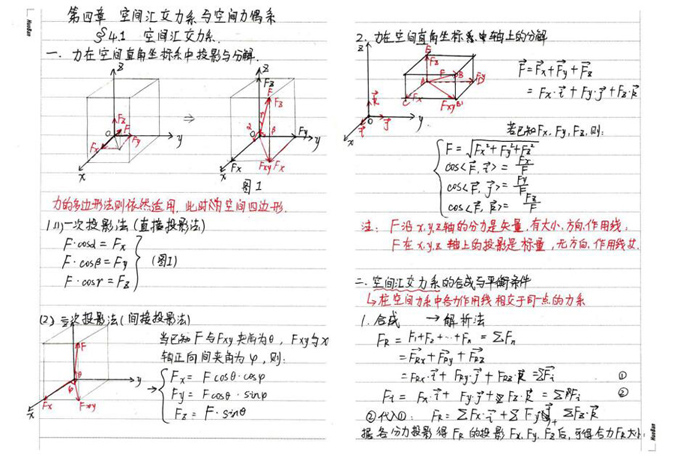 第四章 空间汇交力系与空间力偶系
§4.1 空间汇交力系.
一. 力在空间直角坐标系中投影与分解.
图1
力的多边形法则依然适用, 此时为空间四边形.
1.(1)一次投影法(直接投影法)
F·cosα = Fx
F·cosβ = Fy (图1)
F·cosγ = Fz
(2) 二次投影法(间接投影法)
当已知F与Fxy夹角为θ, Fxy与x
轴正向间夹角为φ, 则:
Fx = F cosθ·cosφ
Fy = F cosθ·sinφ
Fz = F·sinθ
2. 力在空间直角坐标系中轴上的分解
F = Fx + Fy + Fz
= Fx·i + Fy·j + Fz·k
若已知Fx, Fy, Fz, 则:
F = √Fx²+Fy²+Fz²
cos<F, i> = Fx/F
cos<F, j> = Fy/F
cos<F, k> = Fz/F
注: F沿x,y,z轴的分力是矢量, 有大小,方向,作用线,
F在x,y,z轴上的投影是标量, 无方向,作用线
二. 空间汇交力系的合成与平衡条件
↳在空间力系中各力作用线相交于同一点的力系
1. 合成 → 解析法
FR = F1+F2+…+Fn = ΣFn
= FRx + FRy + FRz
= FRx·i + FRy·j + FRz·k = ΣFi ①
Fi = Fx·i + Fy·j + Fz·k ②
②代入①: FR = ΣFx·i + ΣFy·j + ΣFz·k
据各分力投影得FR的投影Fx, Fy, Fz后, 可得合力FR大小